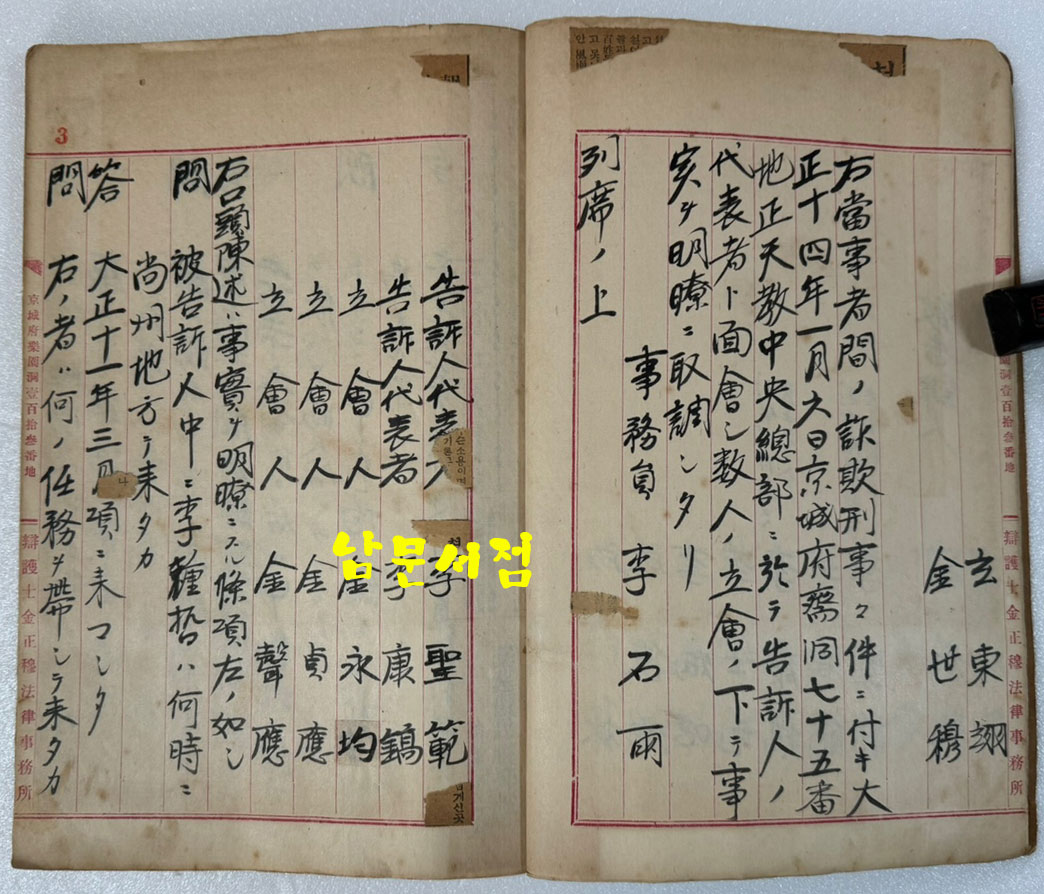 玄東翊
金世穆
右當事者間ノ詐欺刑事々件ニ付キ大
正十四年一月六日京城府齋洞七十五番
地正天教中央總部ニ於テ告訴人ノ
代表者ト面會シ数人ノ立會ノ下テ事
実ヲ明瞭ニ取調シタリ
列席ノ上
事務員 李石雨
告訴人代表人 李聖範
告訴人代表者 李康鎬
立會人 金永均
立會人 金貞應
立會人 金聲應
右口頭陳述ハ事實ヲ明瞭ニスル條項左ノ如シ
問 被告訴人中ニ李鍾哲ハ何時ニ
尚州地方テ来タカ
答 大正十一年三月項ニ来マシタ
問 右ノ者ハ何ノ任務ヲ帶シテ来タカ
3
京城府樂園洞壹百拾參番地
辯護士金正穆法律事務所
洞壹百拾參番地
辯護士金正穆法律事務所
남문서점